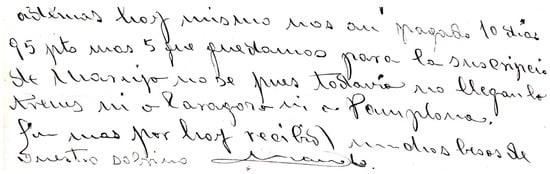 además hoy mismo nos an pagado 10 dias
95 pts mas 5 que quedamos para la suscripcio
de no se pues todavia no llegan lo
trenes ni a Zaragoza ni a Pamplona.
Sin mas por hoy recibid muchos besos de
vuestro sobrino